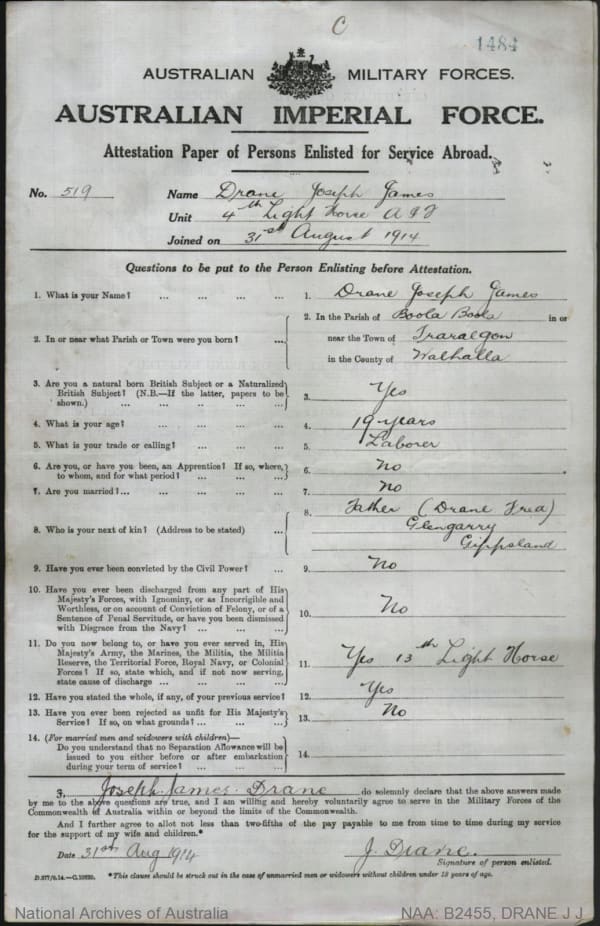 C
1484
AUSTRALIAN MILITARY FORCES.
AUSTRALIAN IMPERIAL FORCE.
Attestation Paper of Persons Enlisted for Service Abroad.
No. 519 Name Drane Joseph James
Unit 4th Light Horse A I F
Joined on 31st August 1914
Questions to be put to the Person Enlisting before Attestation.
1. What is your Name? ... ... ... ... 1. Drane Joseph James
2. In or near what Parish or Town were you born? ... 2. In the Parish of Boola Boola in or
near the Town of Traralgon
in the County of Walhalla
3. Are you a natural born British Subject or a Naturalized
British Subject? (N.B.—If the latter, papers to be
shown.) ... ... ... ... ... 3. Yes
4. What is your age? ... ... ... ... 4. 19 years
5. What is your trade or calling? ... ... ... 5. Laborer
6. Are you, or have you been, an Apprentice? If so, where,
to whom, and for what period? ... ... ... 6. No
7. Are you married?... ... ... ... ... 7. No
8. Who is your next of kin? (Address to be stated) ... 8. Father (Drane Fred)
Glengarry
Gippsland
9. Have you ever been convicted by the Civil Power? ... 9. No
10. Have you ever been discharged from any part of His
Majesty's Forces, with Ignominy, or as Incorrigible and
Worthless, or on account of Conviction of Felony, or of a
Sentence of Penal Servitude, or have you been dismissed
with Disgrace from the Navy? ... ... ... 10. No
11. Do you now belong to, or have you ever served in, His
Majesty's Army, the Marines, the Militia, the Militia
Reserve, the Territorial Force, Royal Navy, or Colonial
Forces? If so, state which, and if not now serving,
state cause of discharge ... ... ... ... 11. Yes 13th Light Horse
12. Have you stated the whole, if any, of your previous service? 12. Yes
13. Have you ever been rejected as unfit for His Majesty's
Service? If so, on what grounds? ... ... ... 13. No
14. (For married men and widowers with children)—
Do you understand that no Separation Allowance will be
issued to you either before or after embarkation
during your term of service? ... ... ... 14.
I, Joseph James Drane do solemnly declare that the above answers made
by me to the above questions are true, and I am willing and hereby voluntarily agree to serve in the Military Forces of the
Commonwealth of Australia within or beyond the limits of the Commonwealth.
And I further agree to allot not less than two-fifths of the pay payable to me from time to time during my service
for the support of my wife and children.*
Date 31st Aug 1914 J Drane.
Signature of person enlisted.
*This clause should be struck out in the case of unmarried men or widowers without children under 18 years of age.
National Archives of Australia NAA: B2455, DRANE J J